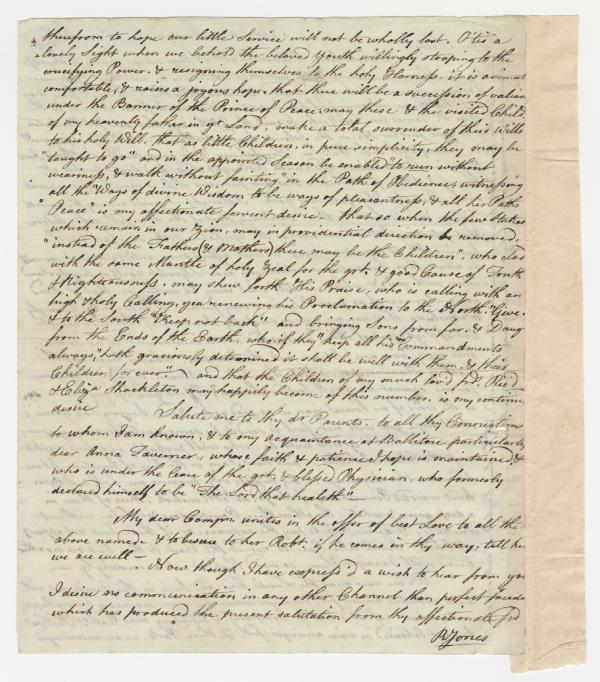 therefrom to hope our little Service will not be wholly lost. O tis a
lovely Sight when we behold the beloved Youth willingly stooping to the
crucifying Power, & resigning themselves to the holy Harness. it is
comfortable, & raises a joyous hope, that there will be a succession of valian
under the Banner of the Prince of Peace; may these & the visited Child
of my heavenly father in yt Land, make a total surrender of their Wills
to his holy Will, that as little Children, in pure simplicity, they may be
"taught to go" and in the appointed Season be enabled "to run without
weariness, & walk without fainting" in the Path of Obedience, witnessing
all the "Ways of divine Wisdom to be ways of pleasantness, & all her Paths
Peace" is my affectionate fervent desire. that so when the few Stakes
which remain in our Zion, may in providential direction be removed,
"instead of the Fathers (& Mothers) there may be the Children", who clad
with the same Mantle of holy Zeal for the grt. & good Cause of Truth
& Righteousness. may shew forth "His Praise, who is calling with an
high & holy Calling, yea renewing his Proclamation to the North, "Give."
& to the South "Keep not back" and bringing Sons from far, & Daug
from the Ends of the Earth, who if they "keep all his Commandments
always," hath graciously determined it shall be well with them, & their
Children for ever." – and that the Children of my much lov'd frd. Rich'd
& Eliza Shackleton may happily become of this number. is my continue
desire
Salute me to thy dr Parents. to all thy Connections
to whom I am known, & to my acquaintance at Ballitore particularly
dear Anna Taverner, whose faith & patience I hope is maintained, &
who is under the Care of the grt. & blessed Physician, who formerly
declared himself to be "The Lord that healeth"
My dear Compn. unites in the offer of best Love to all the
above named – & to besure to her Robt. if he comes in thy way, tell he
we are well –
Now though I have express'd a wish to hear from you
I desire no communication in any other Channel than perfect freedo
which has produced the present salutation from thy affectionate frd
R Jones